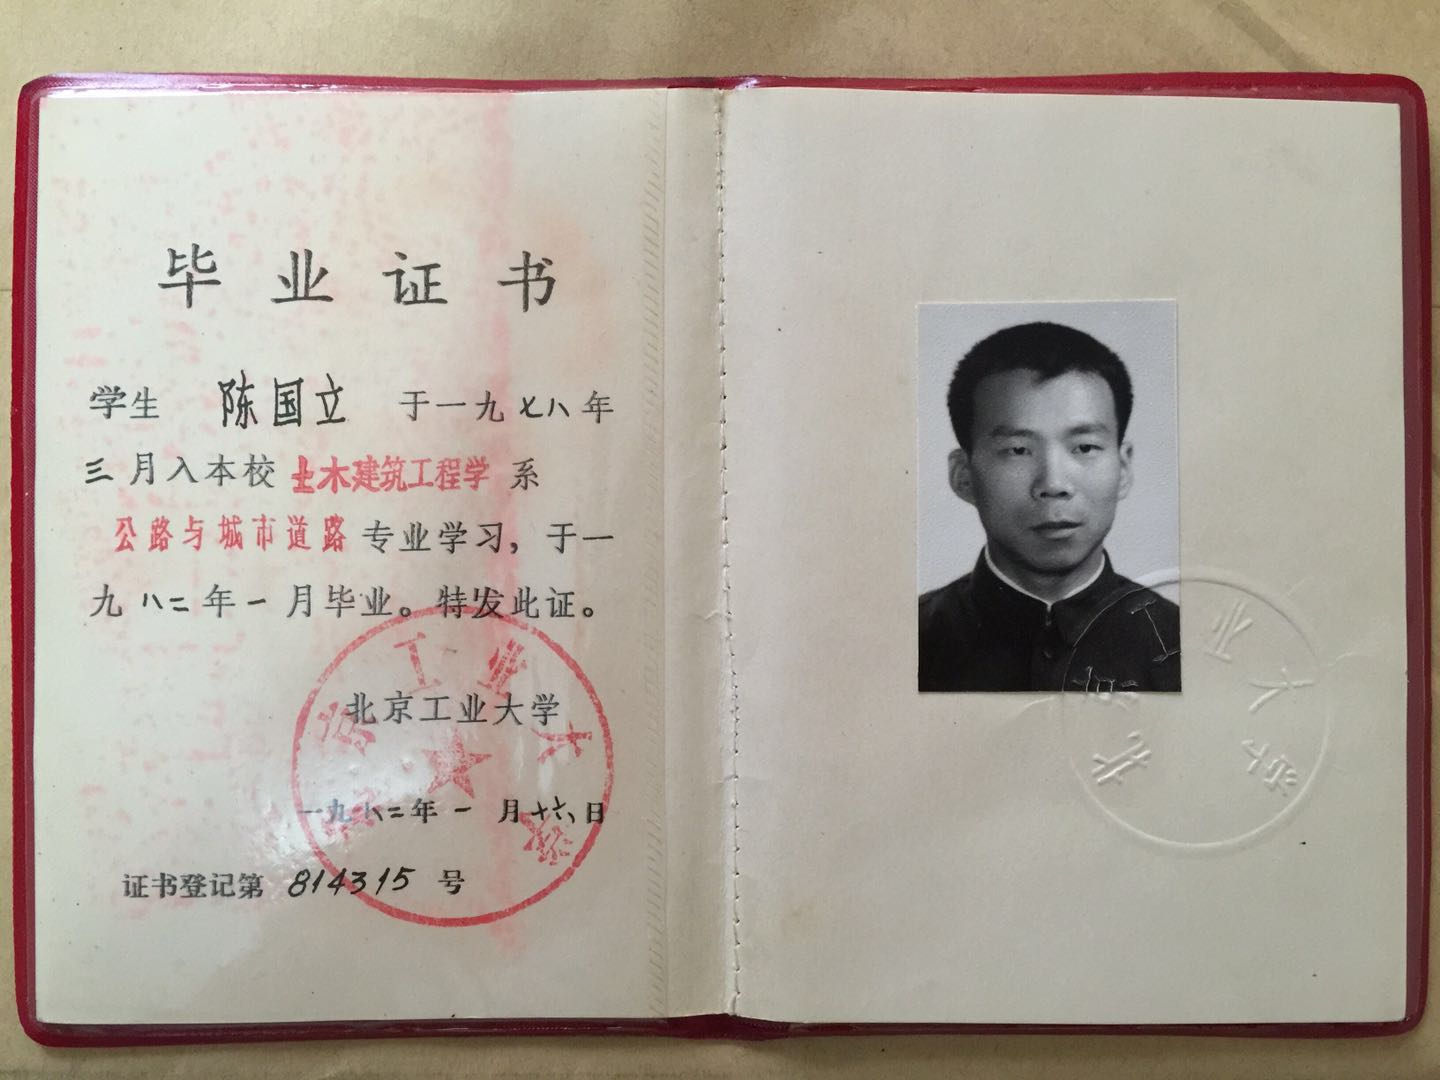 毕业证书
学生 陈国立 于一九七八年
三月入本校 土木建筑工程学 系
公路与城市道路 专业学习，于一
九八二年一月毕业。特发此证。
北京工业大学
一九八二年一月十六日
证书登记第 814315 号
北京工业大学
北京工业大学